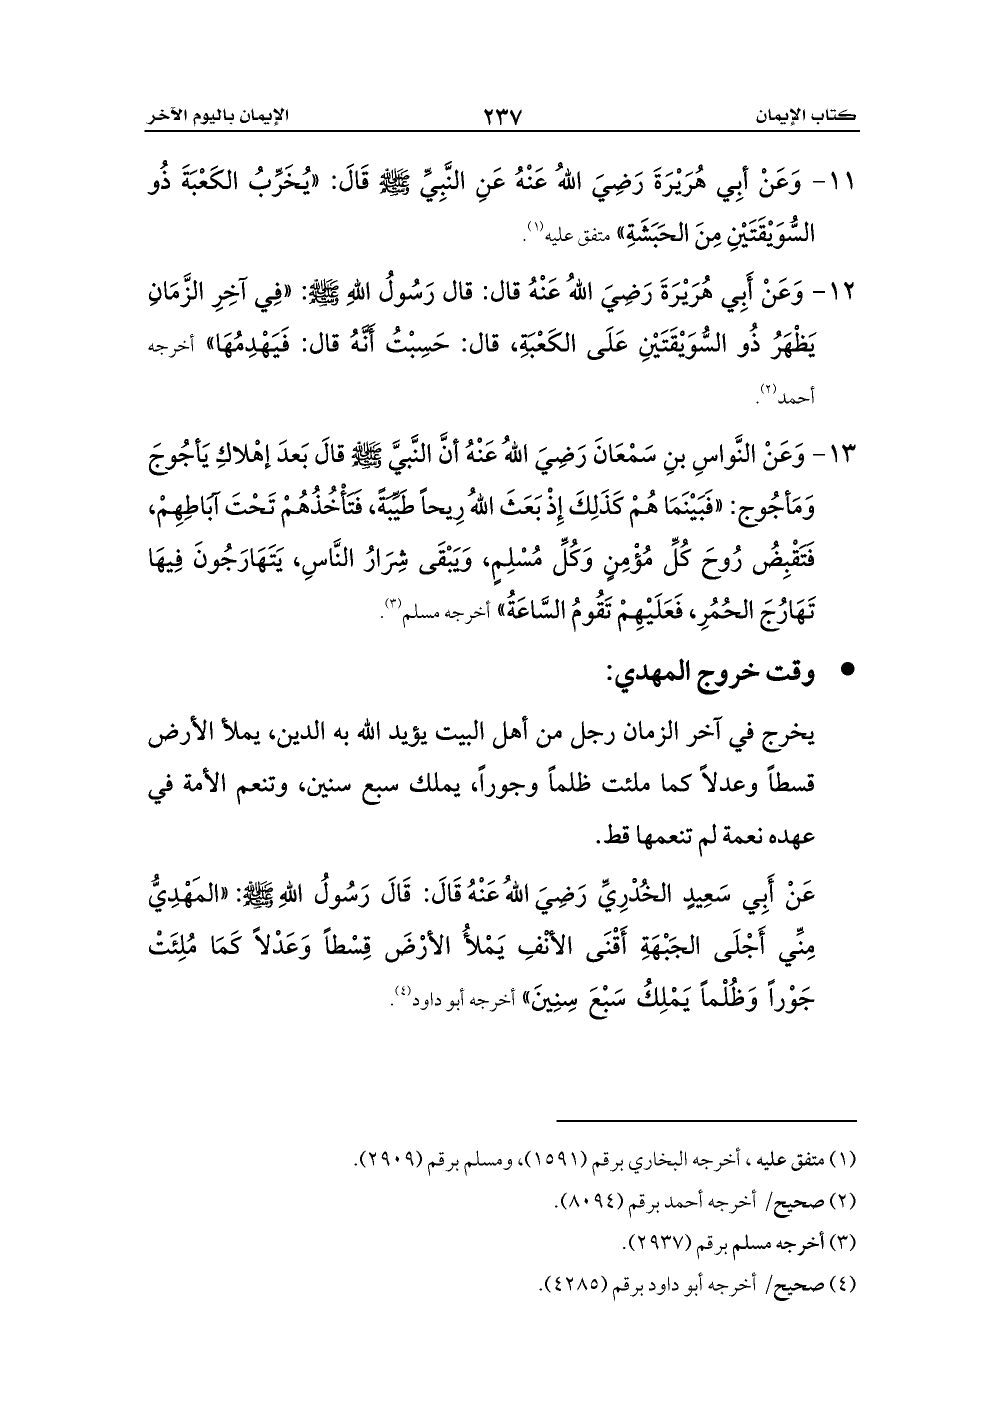 كتاب الإيمان ٢٣٧ الإيمان باليوم الآخر
١١- وَعَنْ أبِي هُرَيْرَةَ رَضِيَ اللهُ عَنْهُ عَنِ النَّبِيِّ ﷺ قَالَ: «يُخَرِّبُ الكَعْبَةَ ذُو
السُّوَيْقَتَيْنِ مِنَ الحَبَشَةِ» متفق عليه(١).
١٢- وَعَنْ أَبِي هُرَيْرَةَ رَضِيَ اللهُ عَنْهُ قال: قال رَسُولُ اللهِ ﷺ: «فِي آخِرِ الزَّمَانِ
يَظْهَرُ ذُو السُّوَيْقَتَيْنِ عَلَى الكَعْبَةِ، قال: حَسِبْتُ أَنَّهُ قال: فَيَهْدِمُهَا» أخرجه
أحمد(٢).
١٣- وَعَنْ النَّواسِ بنِ سَمْعَانَ رَضِيَ اللهُ عَنْهُ أنَّ النَّبيَّ ﷺ قالَ بَعدَ إهْلاكِ يَأجُوجَ
وَمَأجُوج: «فَبَيْنَمَا هُمْ كَذَلِكَ إِذْ بَعَثَ اللهُ رِيحاً طَيِّبَةً، فَتَأْخُذُهُمْ تَحْتَ آبَاطِهِمْ،
فَتَقْبِضُ رُوحَ كُلِّ مُؤْمِنٍ وَكُلِّ مُسْلِمٍ، وَيَبْقَى شِرَارُ النَّاسِ، يَتَهَارَجُونَ فِيهَا
تَهَارُجَ الحُمُرِ، فَعَلَيْهِمْ تَقُومُ السَّاعَةُ» أخرجه مسلم(٣).
● وقت خروج المهدي:
يخرج في آخر الزمان رجل من أهل البيت يؤيد الله به الدين، يملأ الأرض
قسطاً وعدلاً كما ملئت ظلماً وجوراً، يملك سبع سنين، وتنعم الأمة في
عهده نعمة لم تنعمها قط.
عَنْ أَبِي سَعِيدٍ الخُدْرِيِّ رَضِيَ اللهُ عَنْهُ قَالَ: قَالَ رَسُولُ اللهِ ﷺ: «المَهْدِيُّ
مِنِّي أَجْلَى الجَبْهَةِ أَقْنَى الأنْفِ يَمْلأُ الأرْضَ قِسْطاً وَعَدْلاً كَمَا مُلِئَتْ
جَوْراً وَظُلْماً يَمْلِكُ سَبْعَ سِنِينَ» أخرجه أبو داود(٤).
(١) متفق عليه ، أخرجه البخاري برقم (١٥٩١)، ومسلم برقم (٢٩٠٩).
(٢) صحيح/ أخرجه أحمد برقم (٨٠٩٤).
(٣) أخرجه مسلم برقم (٢٩٣٧).
(٤) صحيح/ أخرجه أبو داود برقم (٤٢٨٥).